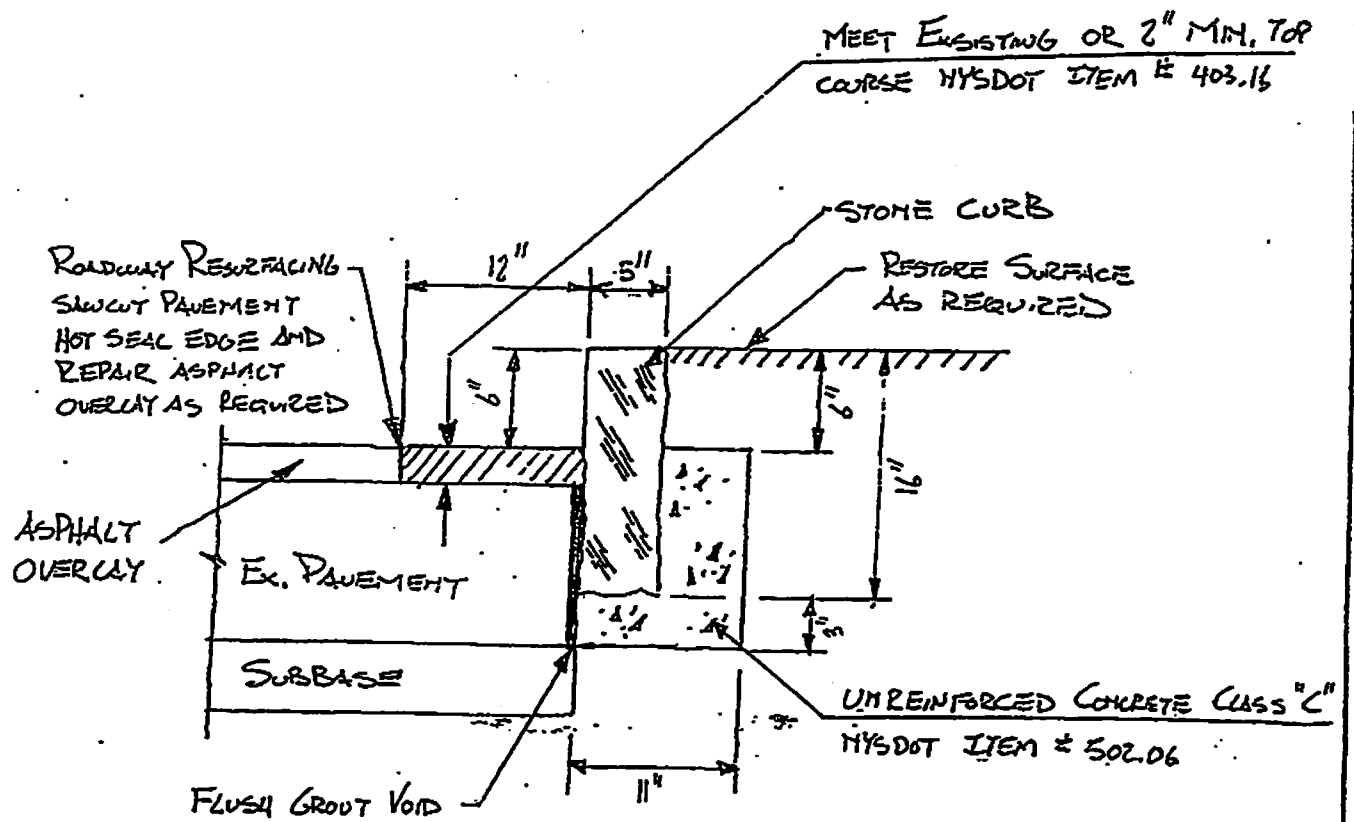 MEET EXSISTING OR 2" MIN. TOP
COURSE NYSDOT ITEM # 403.16
STONE CURB
RESTORE SURFACE
AS REQUIRED
ROADWAY RESURFACING
SAWCUT PAVEMENT
HOT SEAL EDGE AND
REPAIR ASPHALT
OVERLAY AS REQUIRED
12"
5"
6"
6"
16"
3"
ASPHALT
OVERLAY
EX. PAVEMENT
SUBBASE
UNREINFORCED CONCRETE CLASS "C"
NYSDOT ITEM # 502.06
11"
FLUSH GROUT VOID